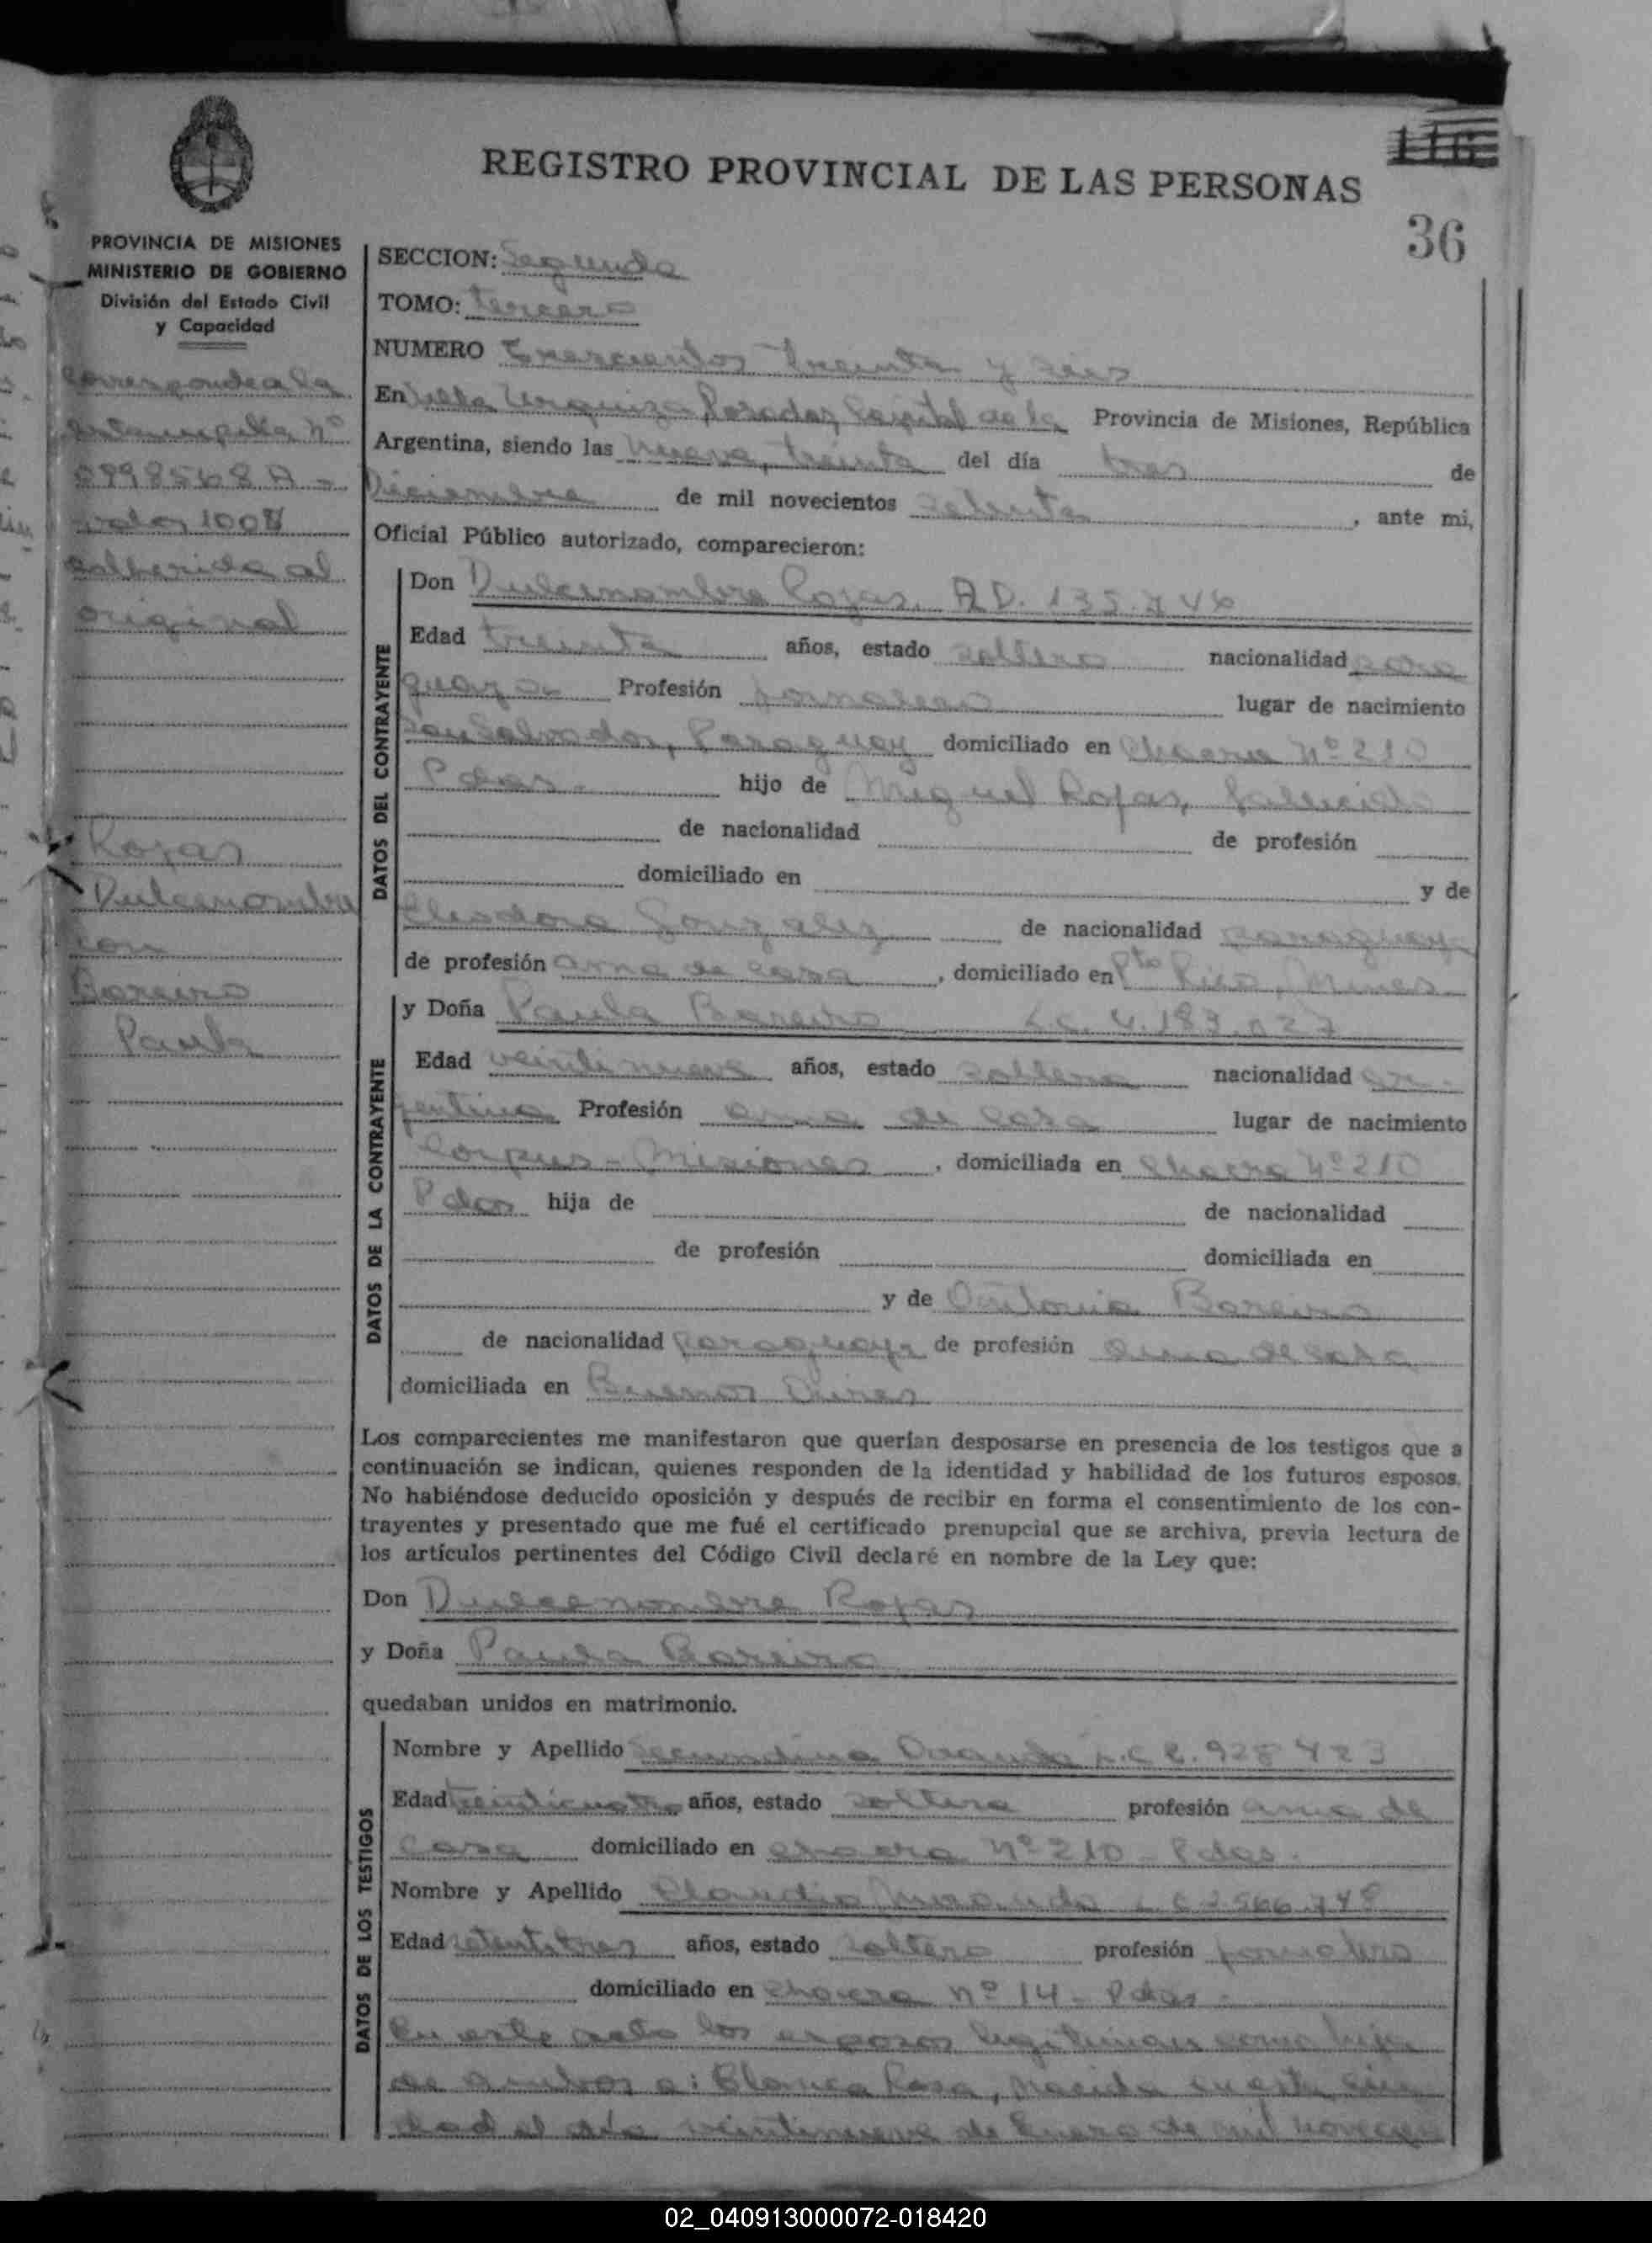 116
REGISTRO PROVINCIAL DE LAS PERSONAS
36
PROVINCIA DE MISIONES
MINISTERIO DE GOBIERNO
División del Estado Civil
y Capacidad
corresponde a la
estampilla nº
valor 100$
adherida al
original
Rojas
Dulcenombre
con
Bareiro
Paula
SECCION: Segunda
TOMO: tercero
NUMERO Trescientos treinta y seis
En Villa Urquiza, Posadas, Capital de la Provincia de Misiones, República
Argentina, siendo las nueve, treinta del día tres de
Diciembre de mil novecientos setenta, ante mi,
Oficial Público autorizado, comparecieron:
DATOS DEL CONTRAYENTE
Don Dulcenombre Rojas. AD. 135.746
Edad treinta años, estado soltero nacionalidad para
guaya Profesión jornalero lugar de nacimiento
San Salvador, Paraguay domiciliado en Chacra Nº 210
Pdas. hijo de Miguel Rojas, fallecido
de nacionalidad de profesión
domiciliado en y de
Eleodora Gonzalez de nacionalidad paraguaya
de profesión ama de casa, domiciliado en Pto Rico, Mnes.
DATOS DE LA CONTRAYENTE
y Doña Paula Bareiro L.C. 4.187.027
Edad veintinueve años, estado soltera nacionalidad ar-
gentina Profesión ama de casa lugar de nacimiento
Corpus - Misiones, domiciliada en Chacra Nº 210
Pdas hija de de nacionalidad
de profesión domiciliada en
y de Antonia Bareiro
de nacionalidad paraguaya de profesión ama de casa
domiciliada en Buenos Aires
Los comparecientes me manifestaron que querían desposarse en presencia de los testigos que a
continuación se indican, quienes responden de la identidad y habilidad de los futuros esposos.
No habiéndose deducido oposición y después de recibir en forma el consentimiento de los con-
trayentes y presentado que me fué el certificado prenupcial que se archiva, previa lectura de
los artículos pertinentes del Código Civil declaré en nombre de la Ley que:
Don Dulcenombre Rojas
y Doña Paula Bareiro
quedaban unidos en matrimonio.
DATOS DE LOS TESTIGOS
Nombre y Apellido Secundina L.C 2.928 423
Edad años, estado soltera profesión ama de
casa domiciliado en chacra Nº 210 - Pdas.
Nombre y Apellido Claudio Miranda
Edad setentitres años, estado soltero profesión jornalero
domiciliado en chacra nº 14 - Pdas.
En este acto los esposos legitiman como hija
de ambos a: Blanca Rosa, nacida en esta ciu
dad el día veintinueve de Enero de mil novecien
02_040913000072-018420